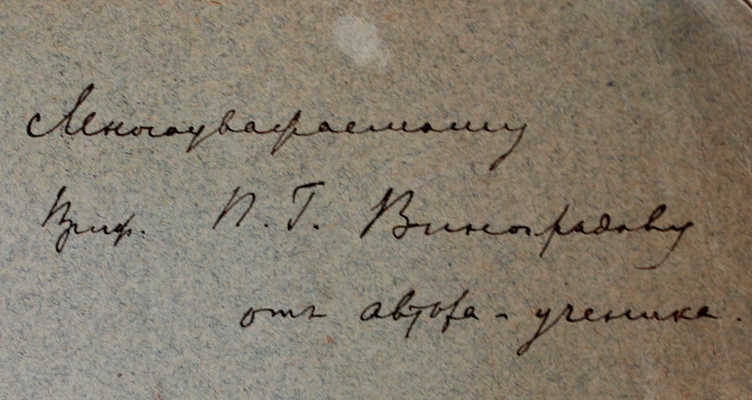 Многоуважаемому
Проф. П. Г. Виноградову
отъ автора - ученика.